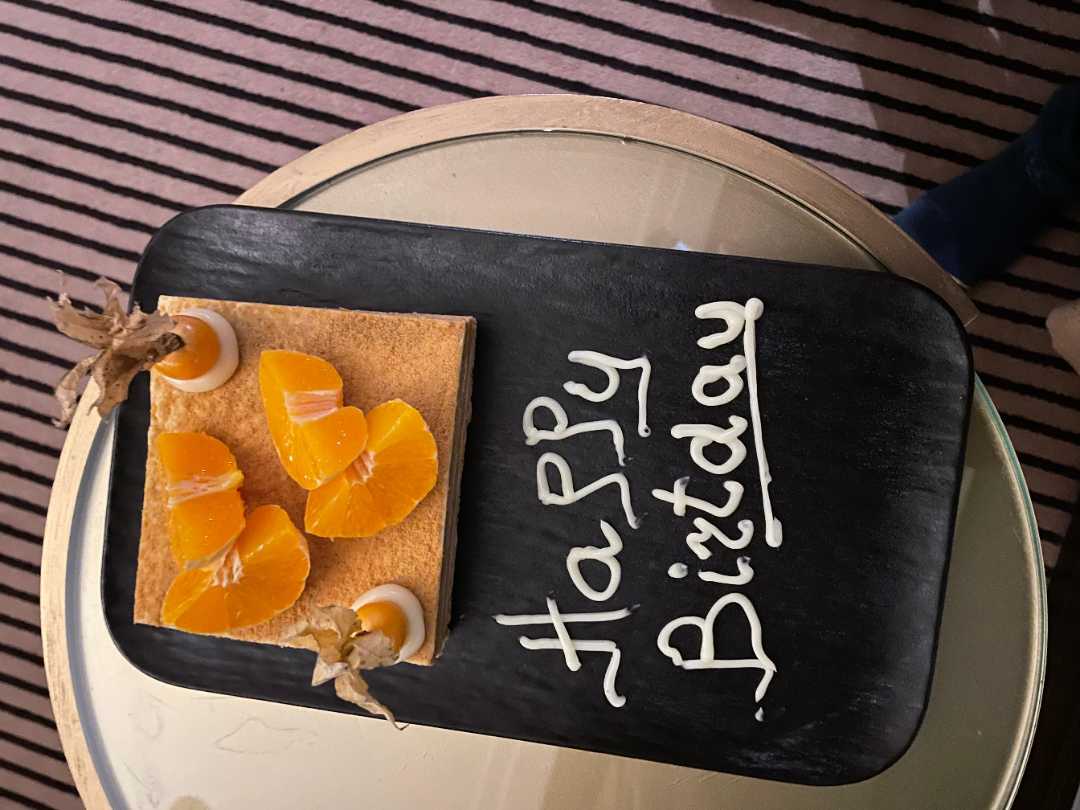 Happy
Birtday